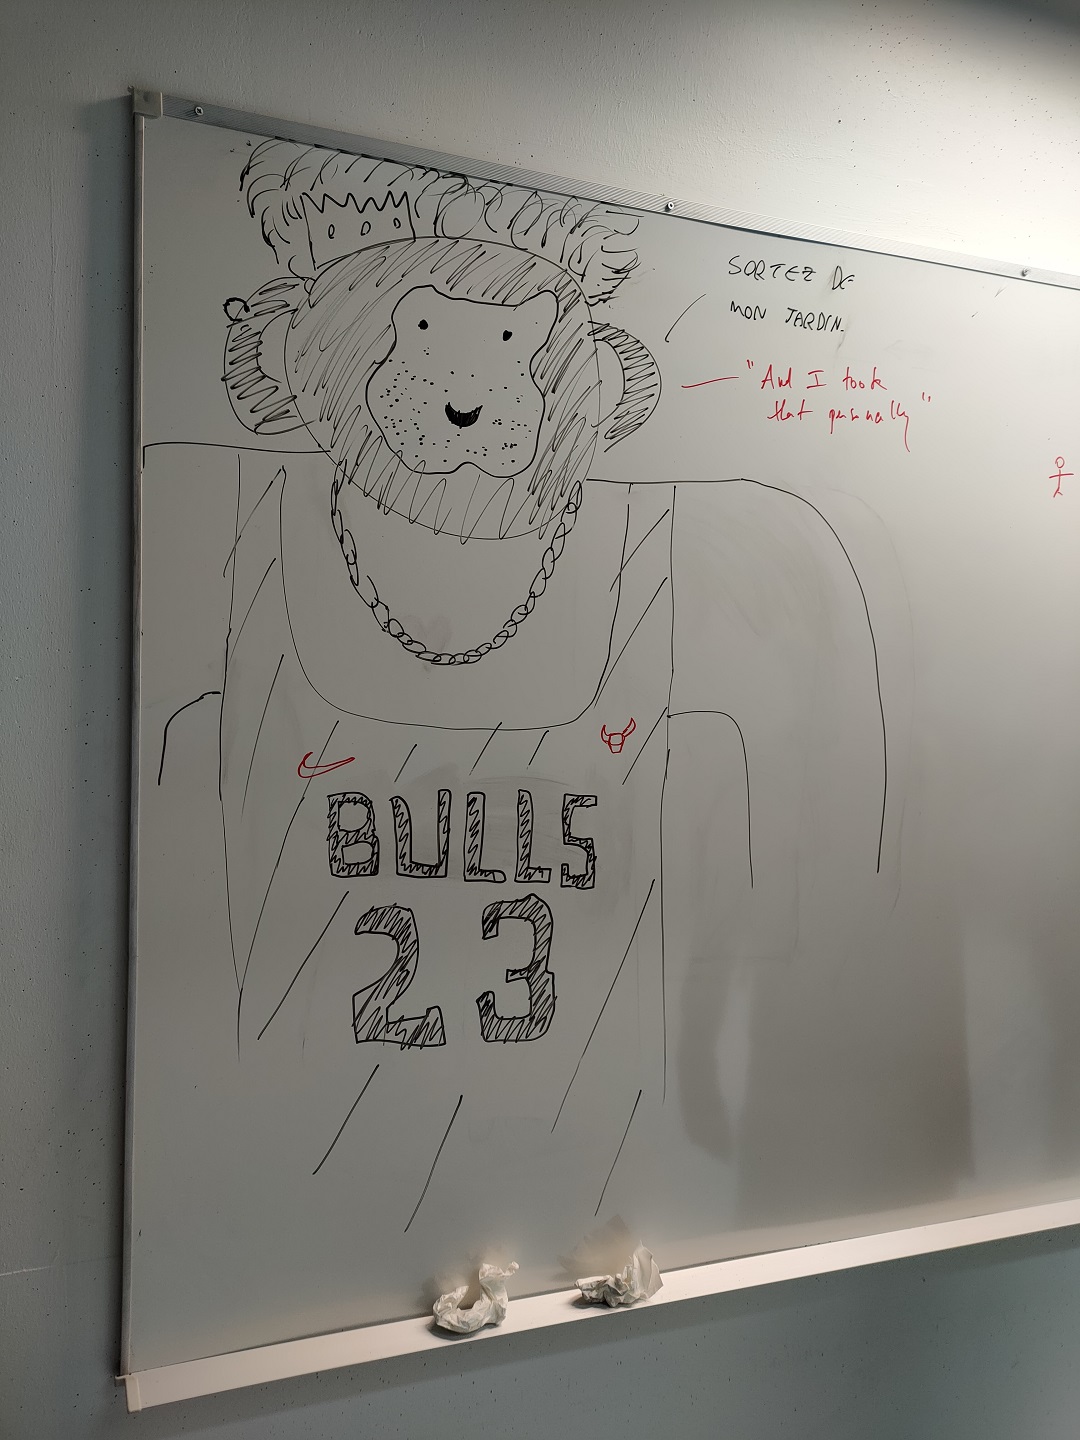 SORTEZ DE
MON JARDIN.
"And I took
that personally"
BULLS
23